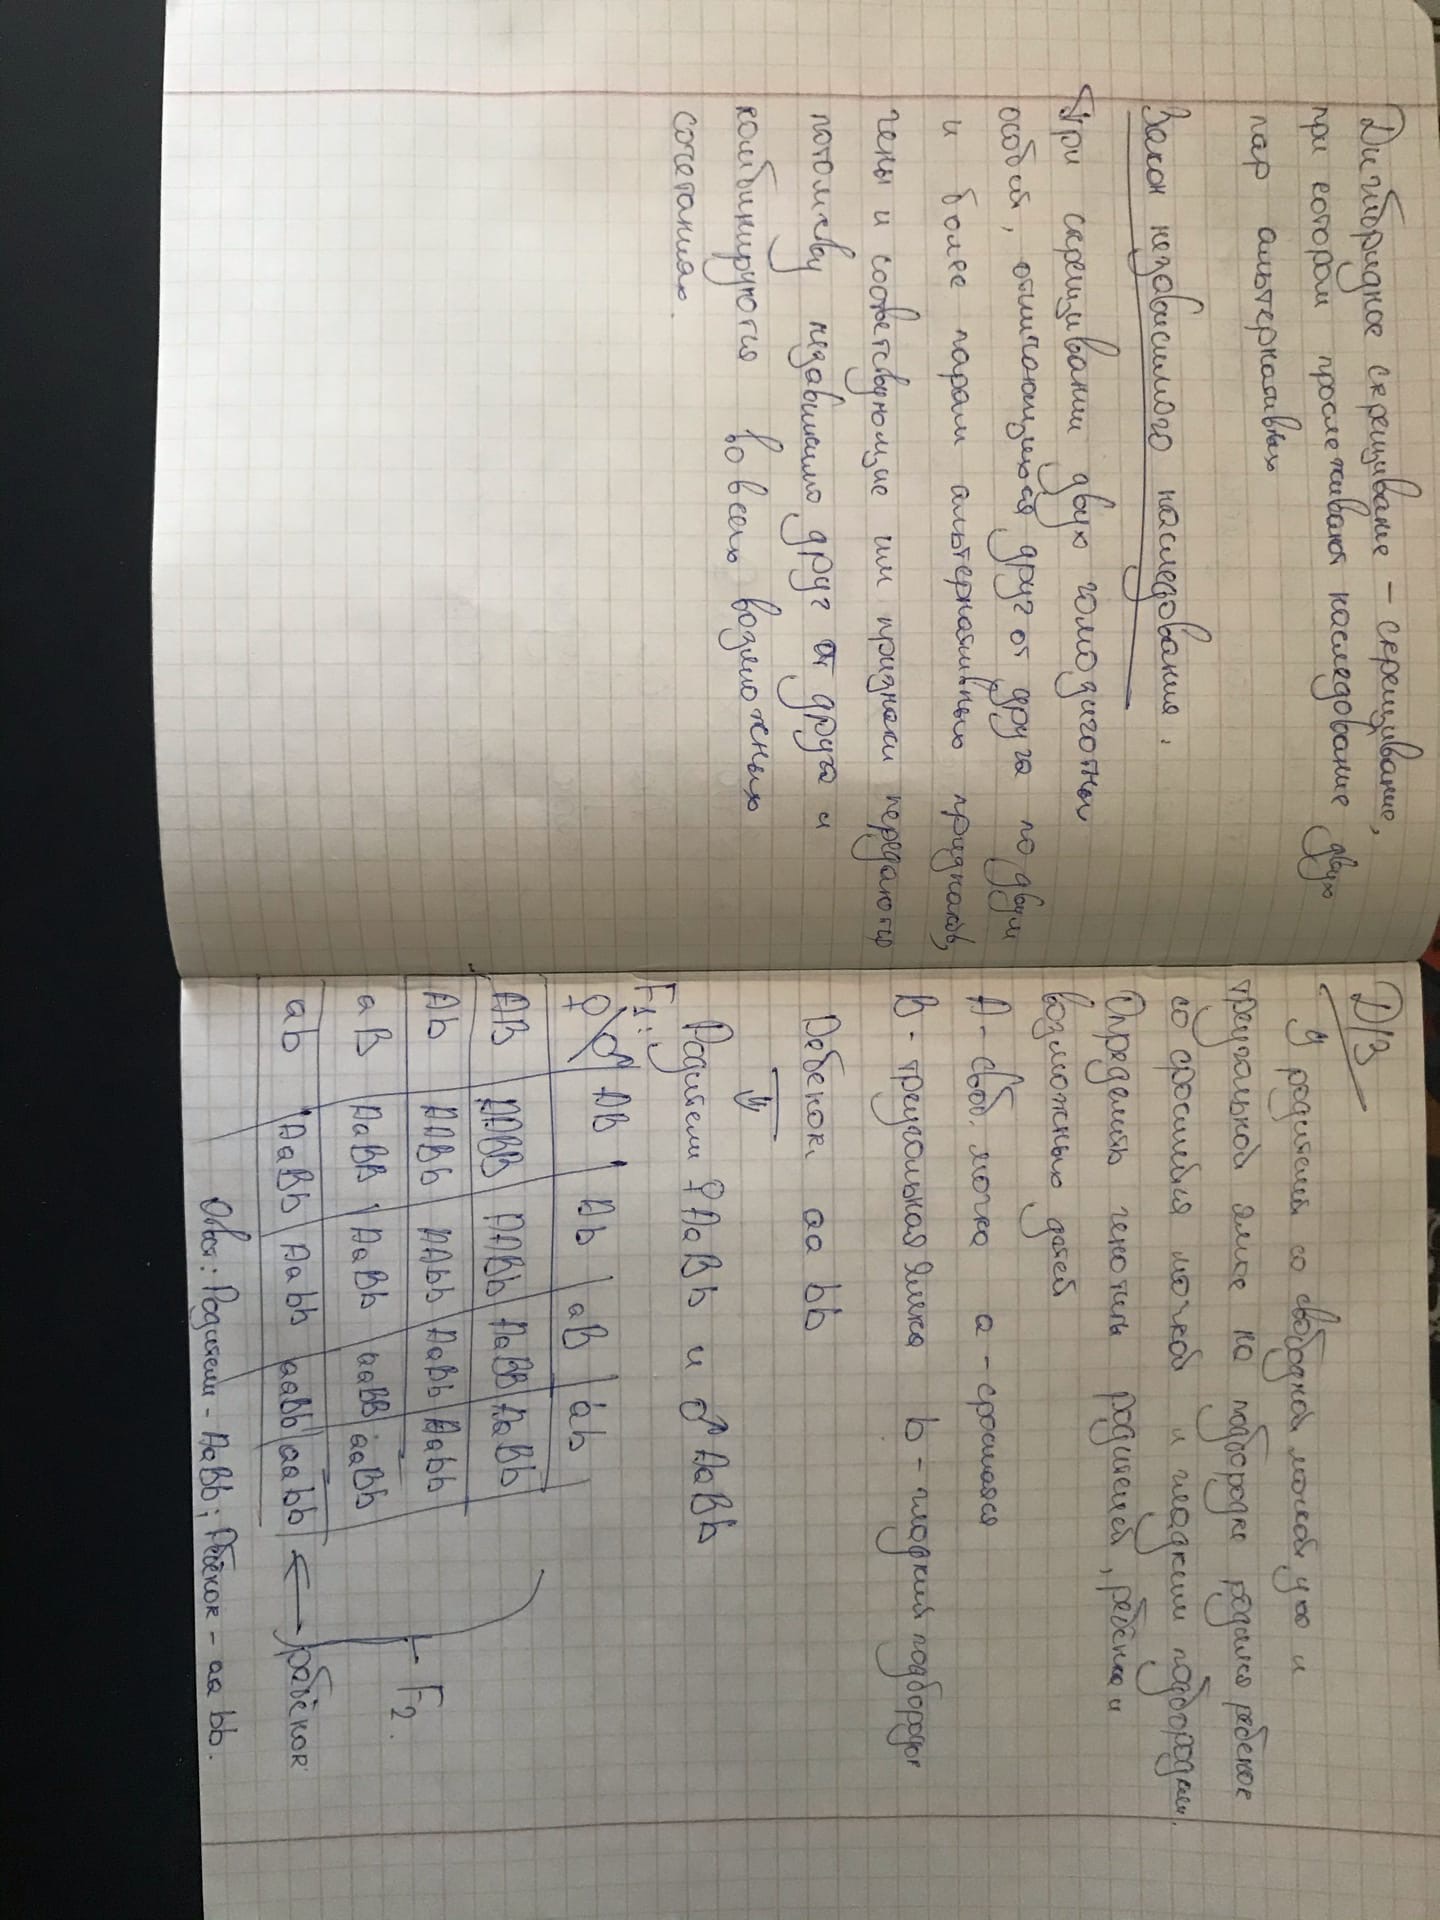 Дигибридное скрещивание – скрещивание,
при котором прослеживают наследование двух
пар альтернативных
Закон независимого наследования.
При скрещивании двух гомозиготных
особей, отличающихся друг от друга по двум
и более парам альтернативных признаков,
гены и соответствующие им признаки передаются
потомству независимо друг от друга и
комбинируются во всех возможных
сочетаниях.
Д/З
У родителей со свободной мочкой уха и
треугольной ямкой на подбородке родился ребенок
со сросшейся мочкой и гладким подбородком.
Определить генотипы родителей, ребёнка и
возможных детей
A - своб. мочка a - сросшаяся
B - треугольная ямка b - гладкий подбородок
Ребенок aa bb
Родители ♀ AaBb и ♂ AaBb
F1:
♀ \ ♂ AB Ab aB ab
AB AABB AABb AaBB AaBb
Ab AABb AAbb AaBb Aabb
aB AaBB AaBb aaBB aaBb
F2.
ab AaBb Aabb aaBb aabb ← ребёнок
Ответ: Родители - AaBb; Ребёнок - aa bb.